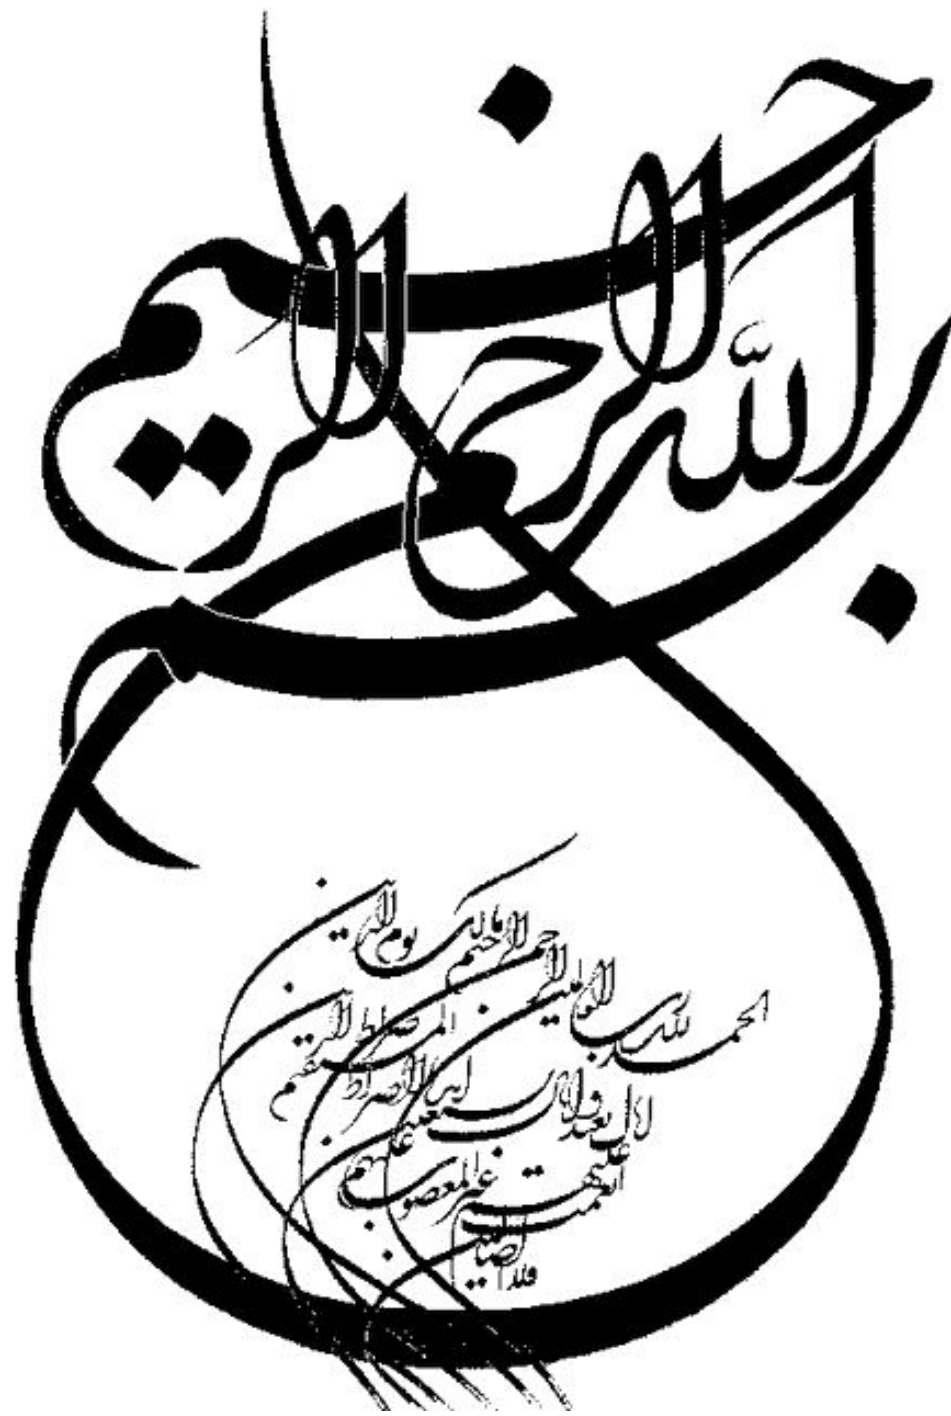 بسم الله الرحمن الرحیم
الحمد لله رب العالمین
الرحمن الرحیم مالک یوم الدین
ایاک نعبد و ایاک نستعین اهدنا الصراط المستقیم
صراط الذین
انعمت علیهم غیر المغضوب علیهم
ولا الضالین